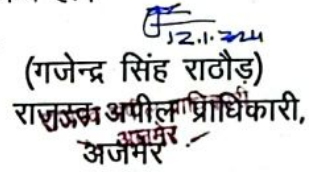 12.1.2024
(गजेन्द्र सिंह राठौड़)
राजस्व अपील प्राधिकारी,
अजमेर